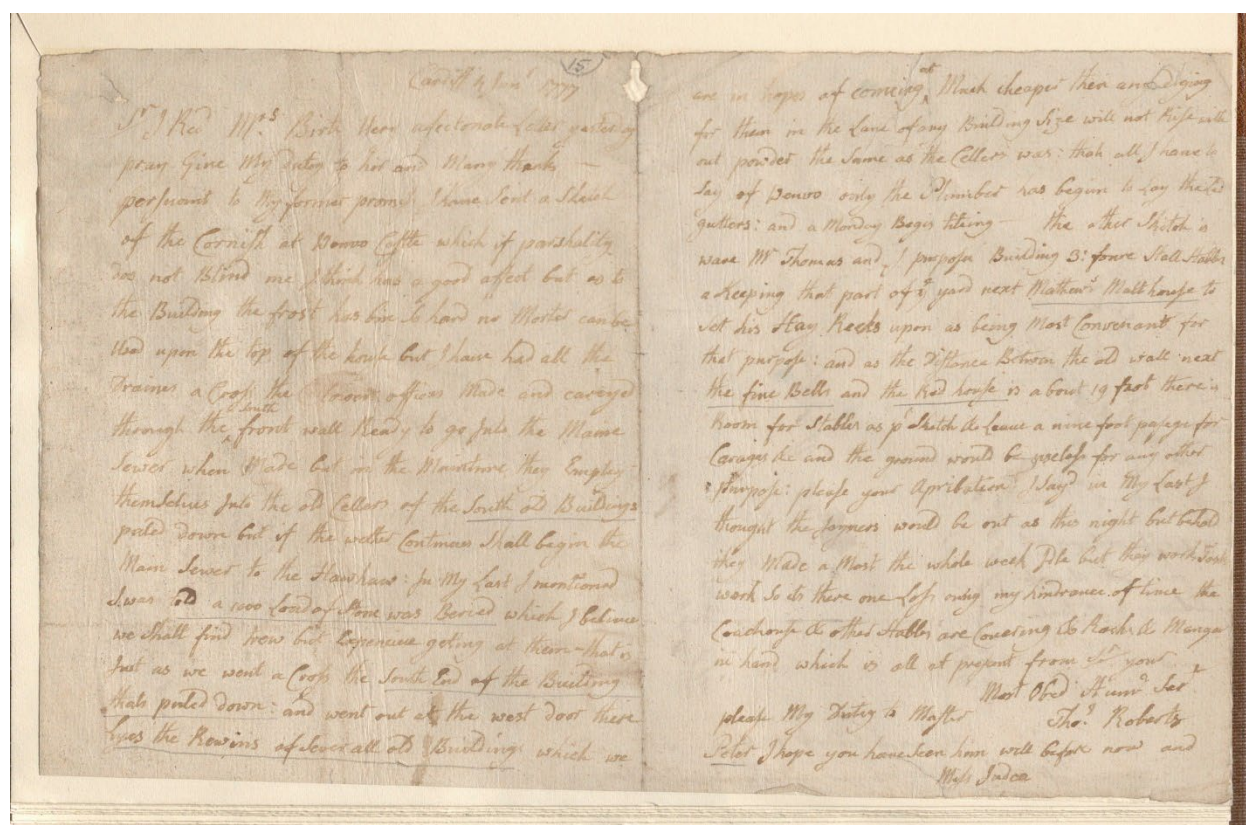 15
Cardiff 4 Jany 1777
Sr. I Recd Mrs. Birts Verey afectonate Letter yesterday
pray Give My Duty to her and Many thanks —
persuant to My former promis I have Sent a Sketch
of the Cornish at Castle which if parshality
dos not Blind me I think has a good afect but as to
the Building the frost has bin So hard no Morter can be
Used upon the top of the house but I have had all the
Draines a Cross the offices Made and careyed
through the South front wall Ready to go Into the Maine
Sewer when Made but in the Maintime they Employ
themselves Into the old Cellars of the South old Buildings
puled down but if the wether Continues Shall begin the
Main Sewer to the Hawhaw: In My Last I montioned
I was told a 1000 Load of Stone was Beried which I believe
we Shall find trew but Expencive geting at them — that is
Just as we went a Cross the South End of the Building
thats puled down: and went out at the west door there
Lyes the Rewins of Severall old Buildings which we
are in hopes of coming at Much cheaper then and Diging
for them in the Lane of any Building Size will not Rise with
out powder the Same as the Cellers was: thats all I have to
Say of only the Plumber has begun to Lay the Led
gutters: and a Monday Begis tileing — the other Sketch is
ware Mr Thomas and I propose Building 3: foure Stall Stables
a Keeping that part of ye yard next Mathews Malthouse to
Set his Hay Reeks upon as being Most Convenant for
that purpose: and as the Distance Betwen the old wall next
the five Bells and the Red house is about 19 foot there is
Room for Stables as pr Sketch & Leave a nine foot pasage for
Carages &c and the ground would be useless for any other
purpose: please your Apribation I Sayd in My Last I
thought the Joyners would be out as this night but behold
they Made a Most the whole week Idle but they work Task
work So its there one Loss only my hindrance of time the
Coachouse & other Stables are Covering & Rack & Manger
in hand which is all at present from Sr your
Most Obedt Humb Sert
please My Duty to Master Thos Roberts
Peter I hope you have Seen him well before now and
Miss Judea